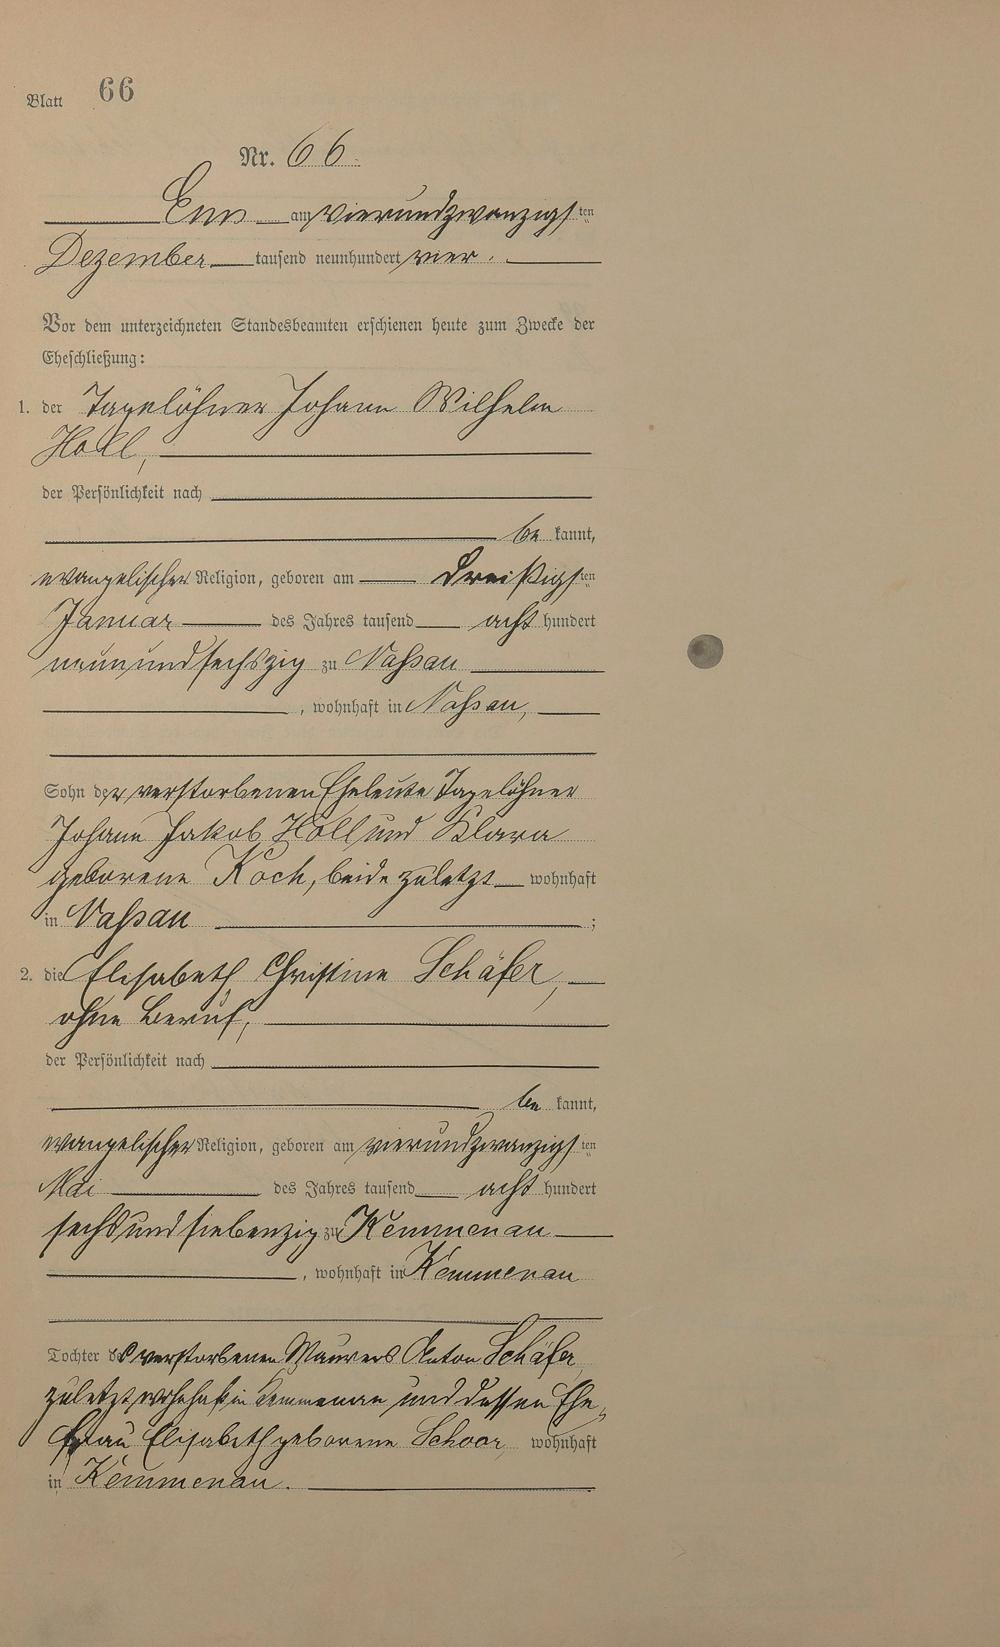 Blatt 66
Nr. 66.
Ems am vierundzwanzigsten
Dezember tausend neunhundert vier.
Vor dem unterzeichneten Standesbeamten erschienen heute zum Zwecke der
Eheschließung:
1. der Tagelöhner Johann Wilhelm
Holl,
der Persönlichkeit nach
be kannt,
evangelischer Religion, geboren am dreißigsten
Januar des Jahres tausend acht hundert
neunundsechszig zu Nassau
, wohnhaft in Nassau,
Sohn der verstorbenen Eheleute Tagelöhner
Johann Jakob Holl und Klara
geborene Koch, beide zuletzt wohnhaft
in Nassau ;
2. die Elisabeth Christine Schäfer,
ohne Beruf,
der Persönlichkeit nach
be kannt,
evangelischer Religion, geboren am vierundzwanzigsten
Mai des Jahres tausend acht hundert
sechsundsiebenzig zu Kemmenau
, wohnhaft in Kemmenau
Tochter des verstorbenen Maurers Anton Schäfer
zuletzt wohnhaft in Kemmenau und dessen Ehe-
frau Elisabeth geborene Schoor wohnhaft
in Kemmenau.